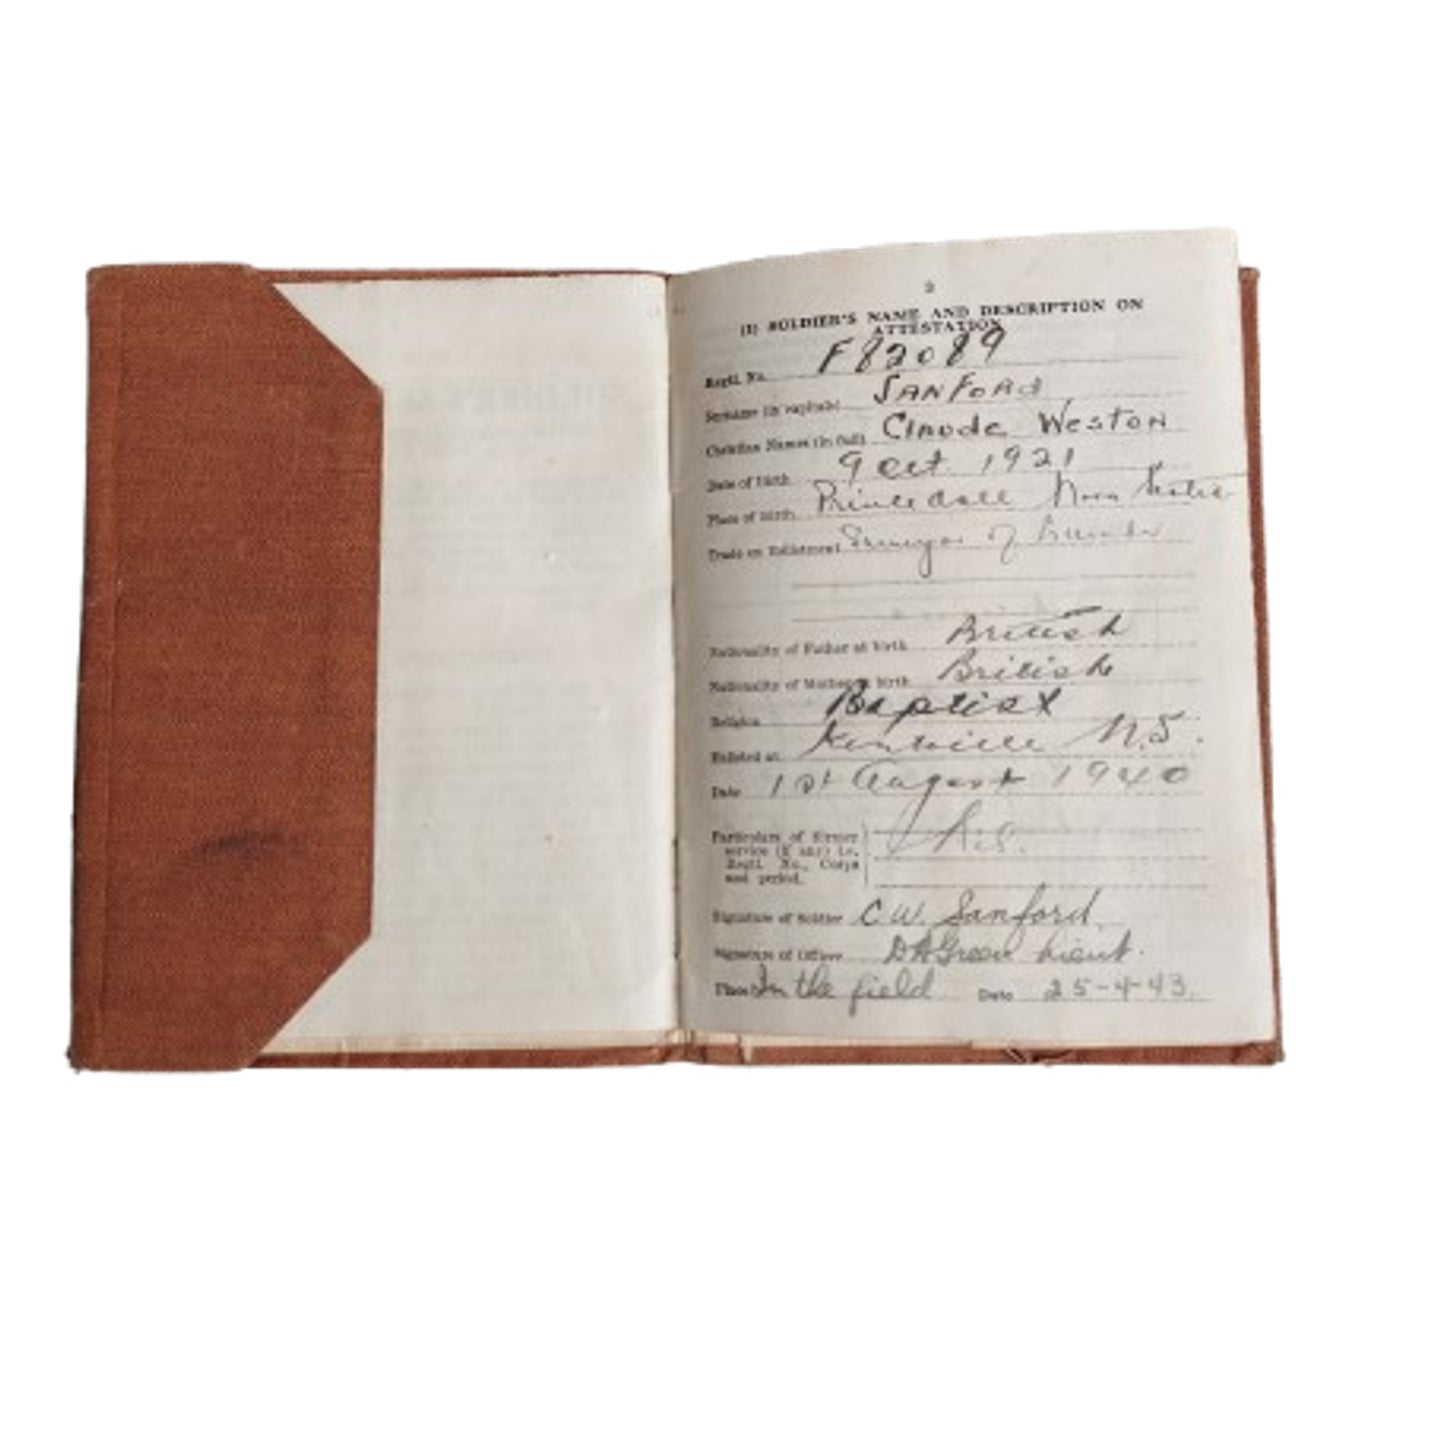 2
(1) SOLDIER'S NAME AND DESCRIPTION ON
ATTESTATION
Regtl. No. F82089
Surname (in capitals) SANFORD
Christian Names (in full) Claude Weston
Date of birth 9 Oct. 1921
Place of birth Nova Scotia
Trade on Enlistment Surveyor of Lumber
Nationality of Father at birth British
Nationality of Mother at birth British
Religion Baptist
Enlisted at Kentville N.S.
Date 1st August 1940
Particulars of former
service (if any) i.e.
Regtl. No., Corps
and period.
Signature of Soldier C.W. Sanford.
Signature of Officer DAGreen Lieut.
Place In the field Date 25-4-43.